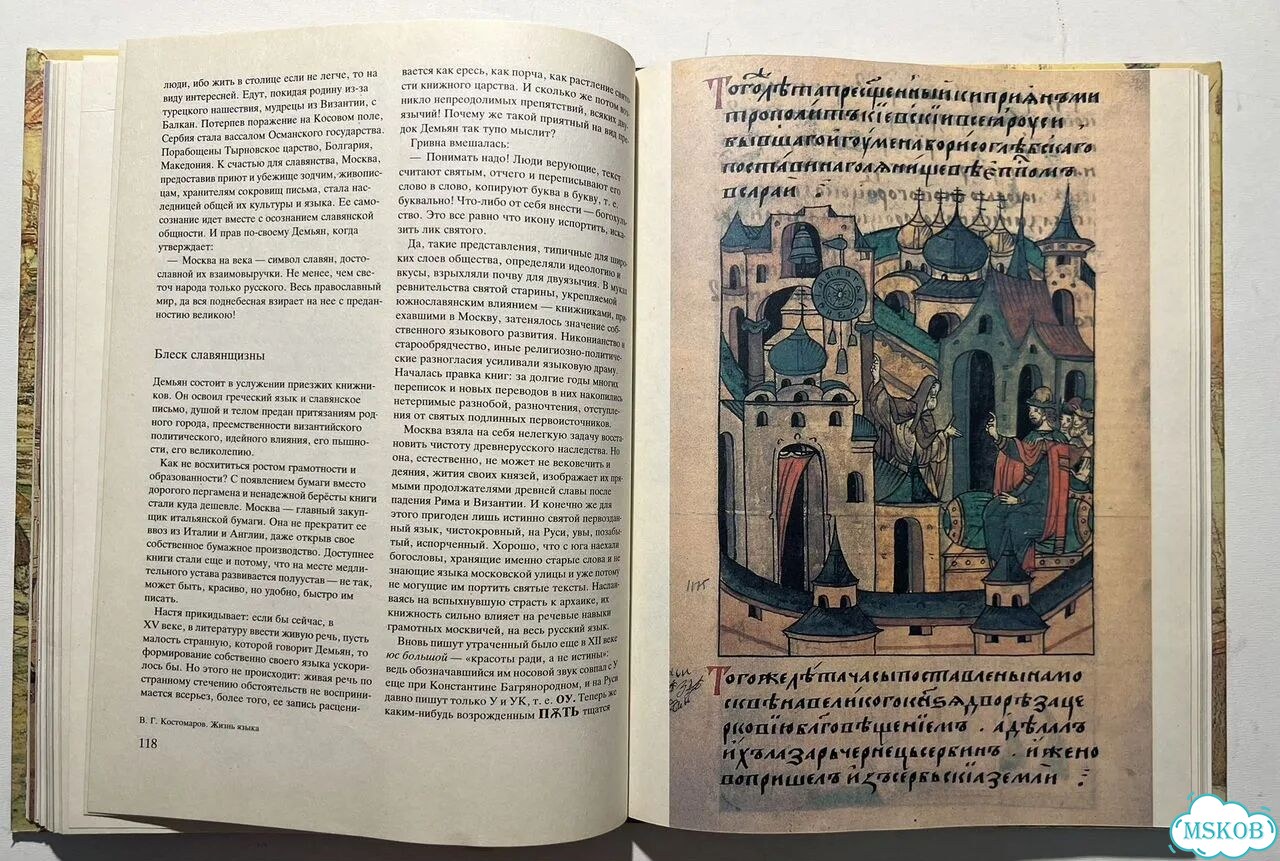 люди, ибо жить в столице если не легче, то на
виду интересней. Едут, покидая родину из-за
турецкого нашествия, мудрецы из Византии, с
Балкан. Потерпев поражение на Косовом поле,
Сербия стала вассалом Османского государства.
Порабощены Тырновское царство, Болгария,
Македония. К счастью для славянства, Москва,
предоставив приют и убежище зодчим, живопис-
цам, хранителям сокровищ письма, стала нас-
ледницей общей их культуры и языка. Ее само-
сознание идет вместе с осознанием славянской
общности. И прав по-своему Демьян, когда
утверждает:
— Москва на века — символ славян, досто-
славной их взаимовыручки. Не менее, чем све-
точ народа только русского. Весь православный
мир, да вся поднебесная взирает на нее с предан-
ностию великою!
Блеск славянщизны
Демьян состоит в услужении приезжих книжни-
ков. Он освоил греческий язык и славянское
письмо, душой и телом предан притязаниям род-
ного города, преемственности византийского
политического, идейного влияния, его пышно-
сти, его великолепию.
Как не восхититься ростом грамотности и
образованности? С появлением бумаги вместо
дорогого пергамена и ненадежной берёсты книги
стали куда дешевле. Москва — главный закуп-
щик итальянской бумаги. Она не прекратит ее
ввоз из Италии и Англии, даже открыв свое
собственное бумажное производство. Доступнее
книги стали еще и потому, что на месте медли-
тельного устава развивается полуустав – не так,
может быть, красиво, но удобно, быстро им
писать.
Настя прикидывает: если бы сейчас, в
XV веке, в литературу ввести живую речь, пусть
малость странную, которой говорит Демьян, то
формирование собственно своего языка ускори-
лось бы. Но этого не происходит: живая речь по
странному стечению обстоятельств не восприни-
мается всерьез, более того, ее запись расцени-
В. Г. Костомаров. Жизнь языка
118
вается как ересь, как порча, как растление свято-
сти книжного царства. И сколько же потом воз-
никло непреодолимых препятствий, всяких дву-
язычий! Почему же такой приятный на вид пре-
док Демьян так тупо мыслит?
Гривна вмешалась:
— Понимать надо! Люди верующие, текст
считают святым, отчего и переписывают его
слово в слово, копируют буква в букву, т. е.
буквально! Что-либо от себя внести — богохуль-
ство. Это все равно что икону испортить, иска-
зить лик святого.
Да, такие представления, типичные для широ-
ких слоев общества, определяли идеологию и
вкусы, взрыхляли почву для двуязычия. В муках
ревнительства святой старины, укрепляемой
южнославянским влиянием — книжниками, при-
ехавшими в Москву, затенялось значение соб-
ственного языкового развития. Никонианство и
старообрядчество, иные религиозно-политиче-
ские разногласия усиливали языковую драму.
Началась правка книг: за долгие годы многих
переписок и новых переводов в них накопились
нетерпимые разнобой, разночтения, отступле-
ния от святых подлинных первоисточников.
Москва взяла на себя нелегкую задачу восста-
новить чистоту древнерусского наследства. Но
она, естественно, не может не вековечить и
деяния, жития своих князей, изображает их пря-
мыми продолжателями древней славы после
падения Рима и Византии. И конечно же для
этого пригоден лишь истинно святой первоздан-
ный язык, чистокровный, на Руси, увы, позабы-
тый, испорченный. Хорошо, что с юга наехали
богословы, хранящие именно старые слова и не
знающие языка московской улицы и уже потому
не могущие им портить святые тексты. Наслаи-
ваясь на вспыхнувшую страсть к архаике, их
книжность сильно влияет на речевые навыки
грамотных москвичей, на весь русский язык.
Вновь пишут утраченный было еще в XII веке
юс большой — «красоты ради, а не истины»:
ведь обозначавшийся им носовой звук совпал с У
еще при Константине Багрянородном, и на Руси
давно пишут только У и УК, т. е. ОУ. Теперь же
каким-нибудь возрожденным ПѪТЬ тщатся
Тогож лѣта преѡсщенный киприянъ ми
трополитъ кіевскіи и всеа роуси
бывшаго игоумена борисоглѣбскаго
постави на голянище въ еп҃пом
в сараи
1175
Тогоже лѣта часы поставлены на мо
сквѣ на великого кн҃sя дворѣ за це
рковїю бл҃говѣщенїем . а дѣлал
ихъ лазарь чернець сербинъ . иже но
во пришелъ изъ сербьскїа земли
MSKOB